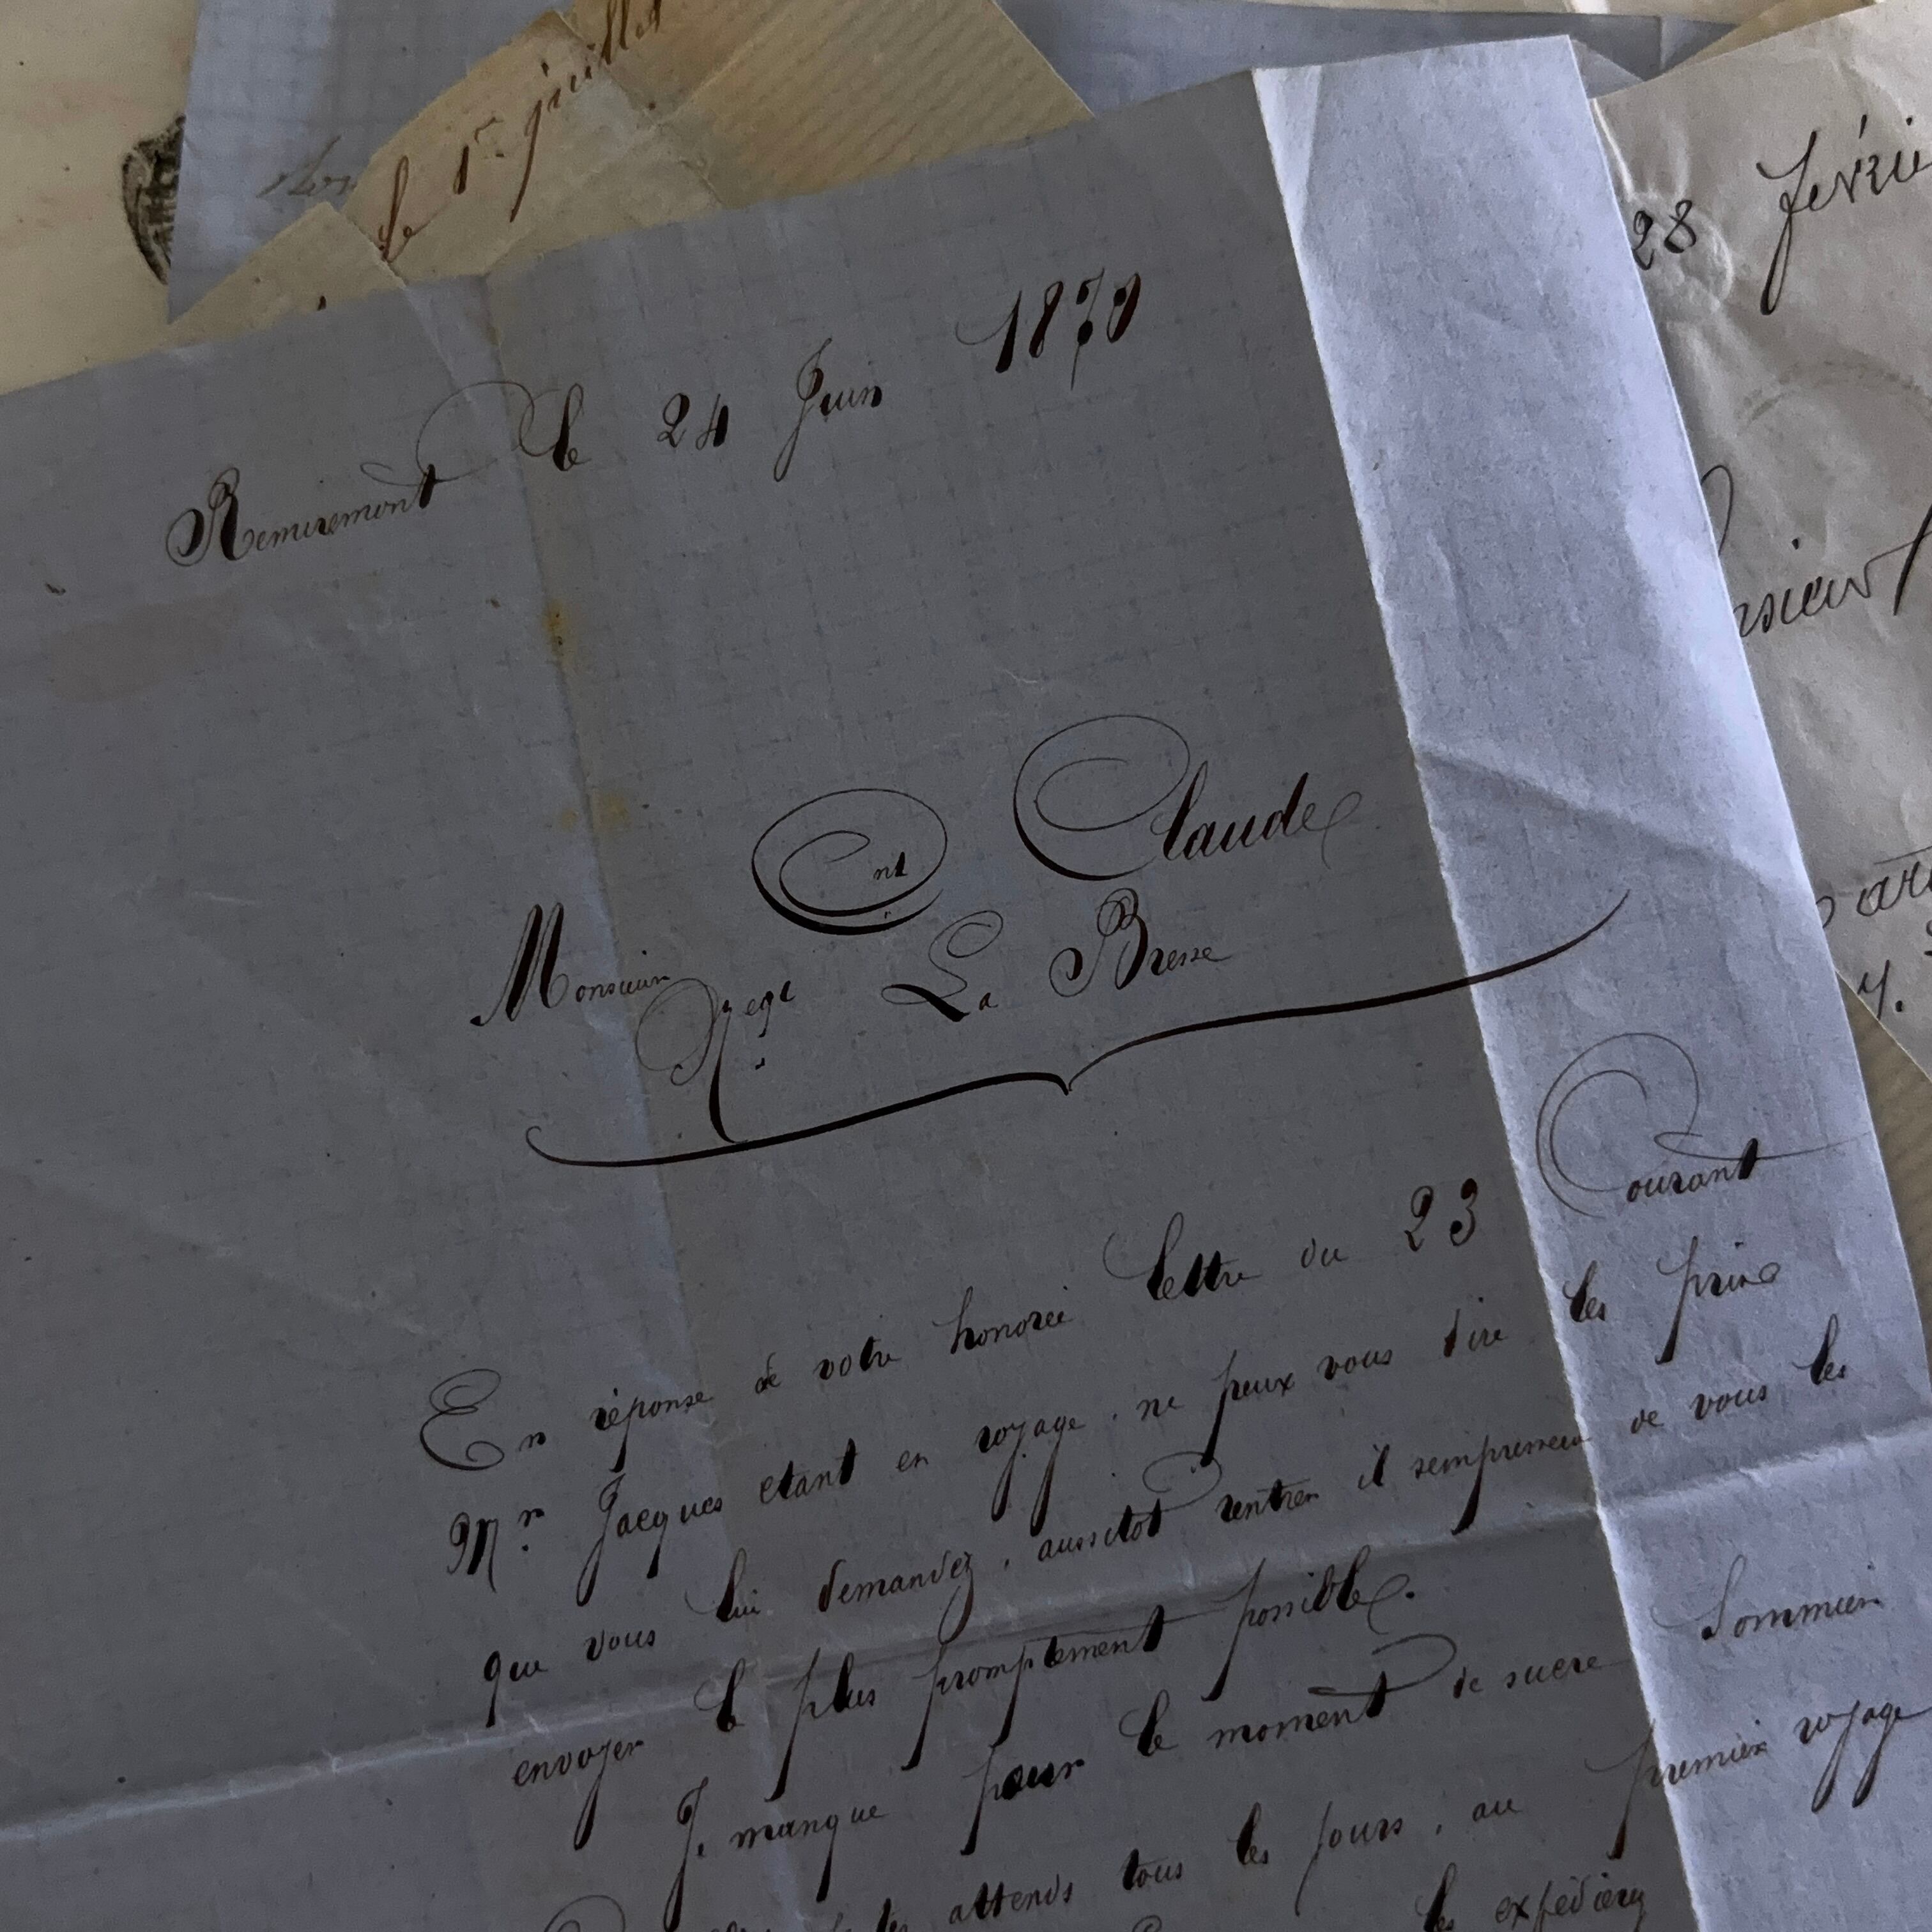 le 1er juillet
28 fevrie
Remiremont le 24 Juin 1870
Monsieur Cnt Claude
Negt La Bresse
En réponse de votre honorée lettre du 23 Courant
Mr. Jacques etant en voyage, ne peux vous dire les prix
que vous lui demandez, aussitot rentrer il sempressera de vous les
envoyer le plus promptement possible.
Je manque pour le moment de sucre Sommier
les attends tous les jours, au premier voyage
les expédierez